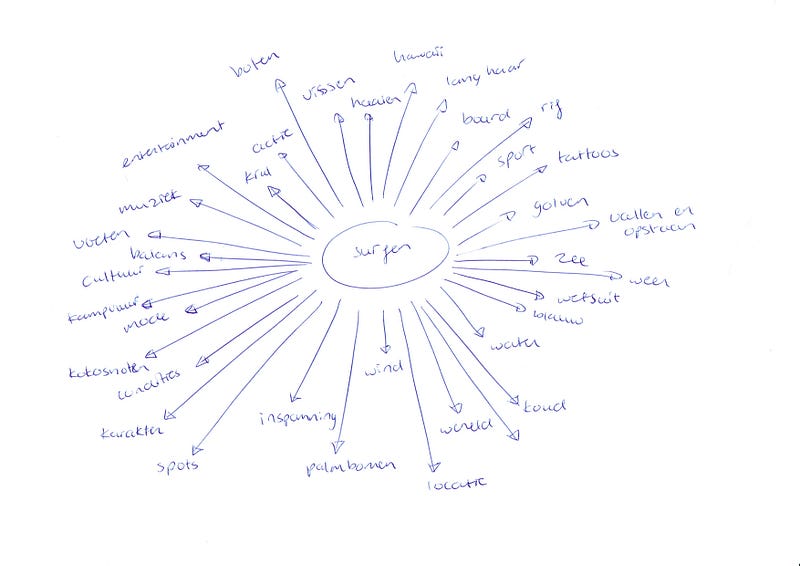 hawaii
boten
vissen
lang haar
haaien
board
rif
entertainment
actie
sport
tattoos
krul
muziek
golven
vallen en
opstaan
voeten
balans
surfen
zee
cultuur
weer
wetsuit
kampvuur
mode
blauw
water
kokosnoten
wind
condities
koud
inspanning
wereld
karakter
spots
palmbomen
locatie